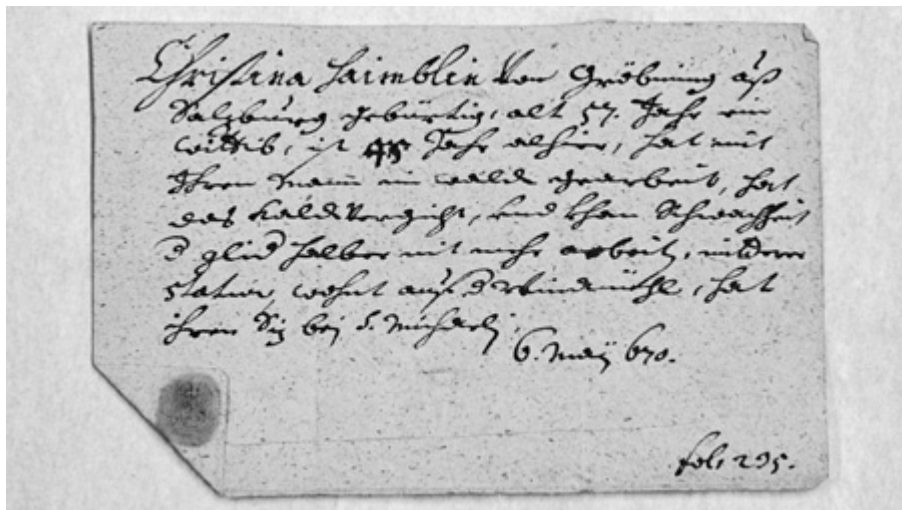 Christina Haimblin Von Gröbming auß
Salzburg gebürtig, alt 57. Jahr ein
wittib, ist 45 Jahr alhier, hat mit
Ihren Mann im wald gearbeit, hat
das Kalde Vergicht, und khan Schwachheit
d glid halber nit mehr arbeit, mitterer
statur, wohnt auf d Windmühl, hat
ihren Siz bej S. Michaeli,
6. Maÿ 670.
fol: 295.